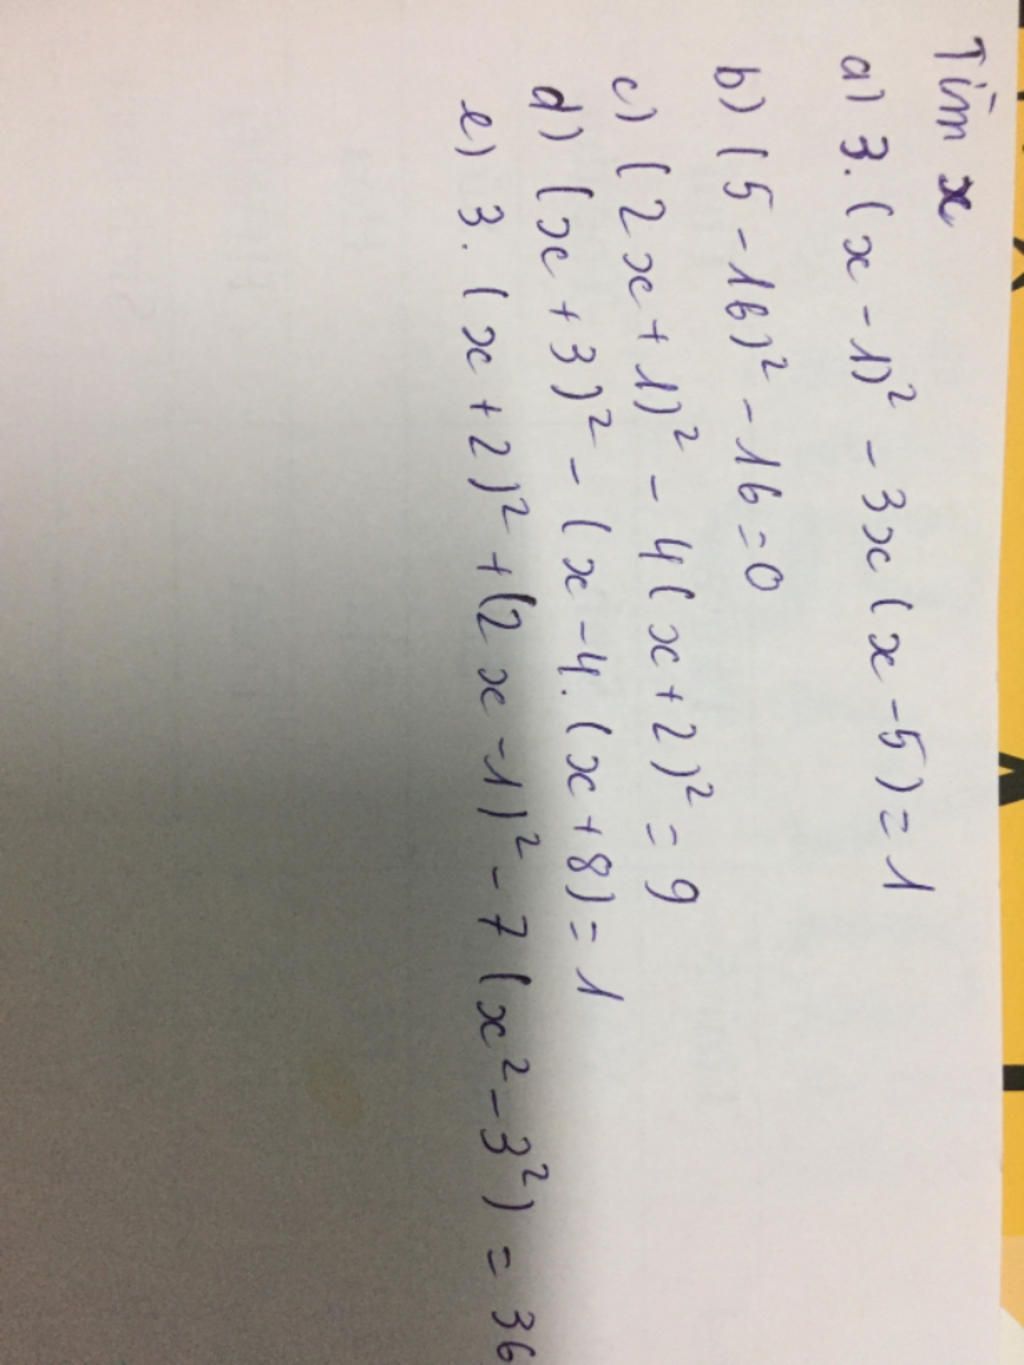 Tìm x
a) 3.(x-1)² - 3x(x-5)=1
b) (5-16)² - 16=0
c) (2x+1)² - 4(x+2)² = 9
d) (x+3)² - (x-4.(x+8)=1
e) 3.(x+2)² + (2x-1)² - 7(x²-3²) = 36